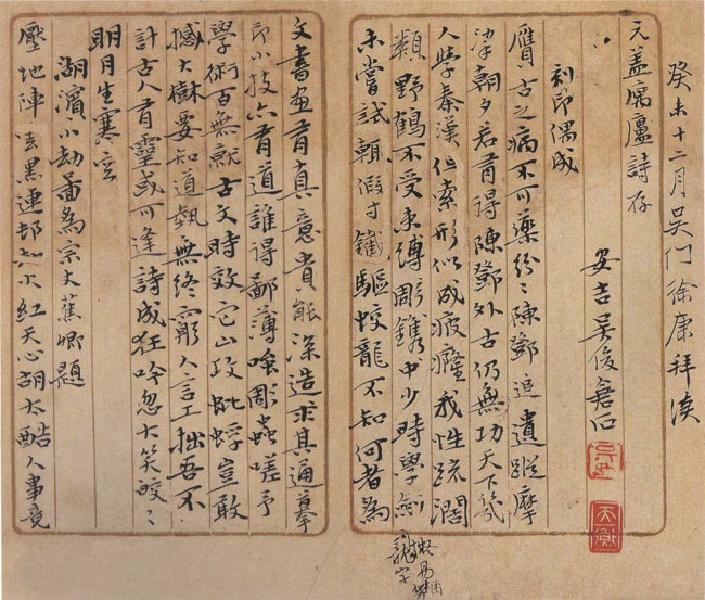 癸未十二月吳门徐康拜讀
元盖寓廬詩存
安吉吳俊倉石
刻印偶成
贋古之病不可藥紛々陳鄧追遺蹤摩
挲朝夕若有得陳鄧外古仍無功天下幾
人學秦漢但索形似成疲癃我性疏濶
類野鶴不受束縛彫鐫中少時學劍
未嘗試輒假寸鐵驅蛟龍不知何者為
文書画有真意貴能深造求其通摹
印小技亦有道誰得鄙薄嗤彫蟲嗟予
學術百無就古文時效它山攻蚍蜉豈敢
撼大樹要知道執無終窮人言工拙吾不
計古人有靈或可逢詩成狂吟忽大笑皎々
明月生寒空
湖濱小劫啚為宗大蕉卿題
壓地陣雲黑連邨火紅天心胡太酷人事竟